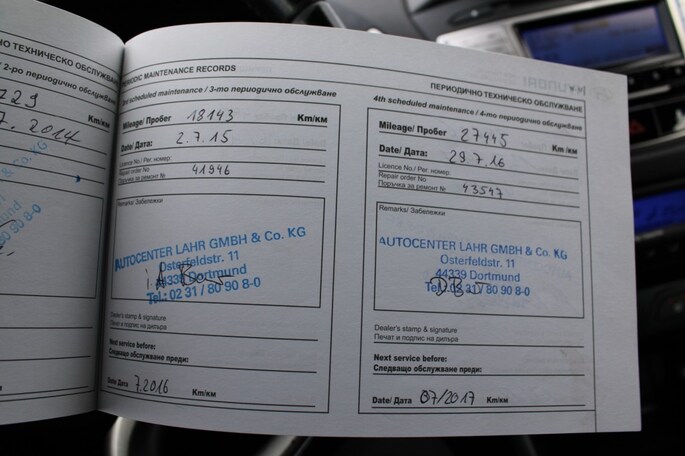 НО ТЕХНИЧЕСКО ОБСЛУЖВАНЕ
/ 2-ро периодично обслужване
729
7.2014
KG
80 90 8-0
PERIODIC MAINTENANCE RECORDS
3rd scheduled maintenance / 3-то периодично обслужване
Mileage/ Пробег 18143 Km/км
Date/ Дата: 2.7.15
Licence No./ Рег. номер:
Repair order No 41946
Поръчка за ремонт №
Remarks/ Забележки
AUTOCENTER LAHR GMBH & Co. KG
Osterfeldstr. 11
44339 Dortmund
Tel.: 02 31 / 80 90 8-0
Dealer's stamp & signature
Печат и подпис на дилъра
Next service before:
Следващо обслужване преди:
Date/ Дата 7.2016 Km/км
ПЕРИОДИЧНО ТЕХНИЧЕСКО ОБСЛУЖВАНЕ
4th scheduled maintenance / 4-то периодично обслужване
Mileage/ Пробег 27445 Km/км
Date/ Дата: 29.7.16
Licence No./ Рег. номер:
Repair order No 43547
Поръчка за ремонт №
Remarks/ Забележки
AUTOCENTER LAHR GMBH & Co. KG
Osterfeldstr. 11
44339 Dortmund
Tel.: 02 31 / 80 90 8-0
Dealer's stamp & signature
Печат и подпис на дилъра
Next service before:
Следващо обслужване преди:
Date/ Дата 07/2017 Km/км